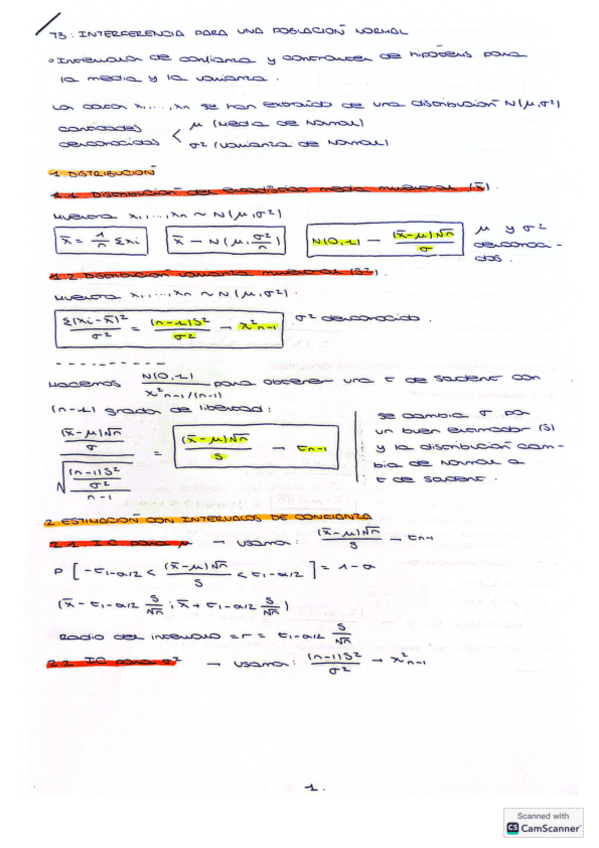 T3: INTERFERENCIA PARA UNA POBLACIÓN NORMAL
• Intervalos de confianza y contrastes de hipótesis para
la media y la varianza.
Los datos x1,...,xn se han extraído de una distribución N(μ,σ²)
cantidades desconocidas < μ (media de Normal)
σ² (varianza de Normal)
1. DISTRIBUCIÓN
1.1 Distribución del estadístico media muestral (x̄).
Muestra x1,...,xn ~ N(μ,σ²)
x̄ = 1/n Σxi
x̄ → N(μ, σ²/n)
N(0,1) → (x̄-μ)√n / σ
μ y σ² desconocidos.
1.2 Distribución varianza muestral (S²).
Muestra x1,...,xn ~ N(μ,σ²).
Σ(xi-x̄)² / σ² = (n-1)S² / σ² → χ²n-1
σ² desconocido.
Hacemos N(0,1) / χ²n-1/(n-1) para obtener una t de student con
(n-1) grados de libertad:
(x̄-μ)√n / σ / √((n-1)S² / σ² / n-1) = (x̄-μ)√n / S → tn-1
se cambia σ por
un buen estimador (S)
y la distribución cam-
bia de Normal a
t de student.
2. ESTIMACIÓN CON INTERVALOS DE CONFIANZA
2.1. IC para μ → usamos: (x̄-μ)√n / S → tn-1
P [ -t1-α/2 < (x̄-μ)√n / S < t1-α/2 ] = 1-α
(x̄ - t1-α/2 S/√n ; x̄ + t1-α/2 S/√n)
Radio del intervalo = r = t1-α/2 S/√n
2.2. IC para σ² → usamos: (n-1)S² / σ² → χ²n-1
1.
Scanned with
CS CamScanner